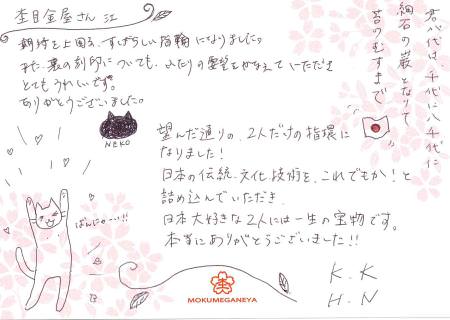 杢目金屋さん江
期待を上回る、すばらしい指輪になりました。
また、裏の刻印についても、ふたりの要望をかなえていただき
とてもうれしいです。
ありがとうございました。
NEKO
君が代は、千代に八千代に
細石の巌となりて
苔のむすまで
望んだ通りの、2人だけの指環に
なりました!
日本の伝統・文化・技術を、これでもか!と
詰め込んでいただき、
日本大好きな2人には一生の宝物です。
本当にありがとうございました!!
ばんにゃーい!!
K.K
H.N
MOKUMEGANEYA